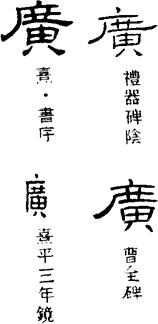 廣
禮器碑陰
廣
曹全碑
廣
熹·書序
廣
熹平三年鏡